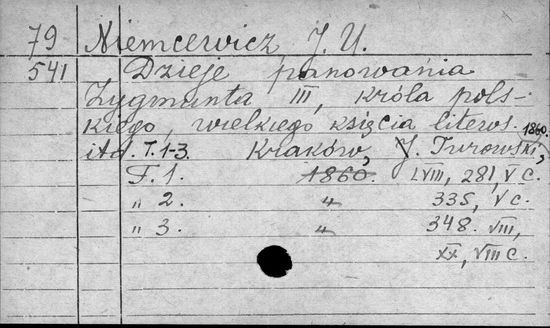 79 Niemcewicz J. U.
541 Dzieje panowania
Zygmunta III, króla pols-
kiego, wielkiego księcia litews.
itd. T. 1-3. Kraków, J. Turowski, 1860.
T. 1. 1860. LVIII, 281, V c.
" 2. " 335, V c.
" 3. " 348. VIII,
XX, VIII c.